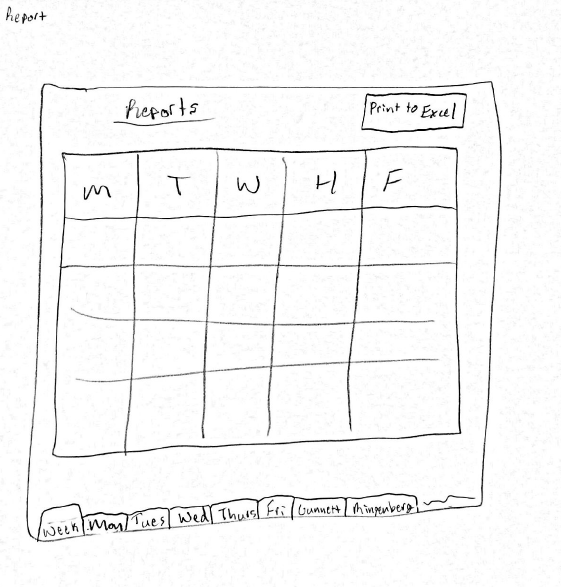 Report
Reports
Print to Excel
M T W H F
Week Mon Tues Wed Thurs Fri Gunnett